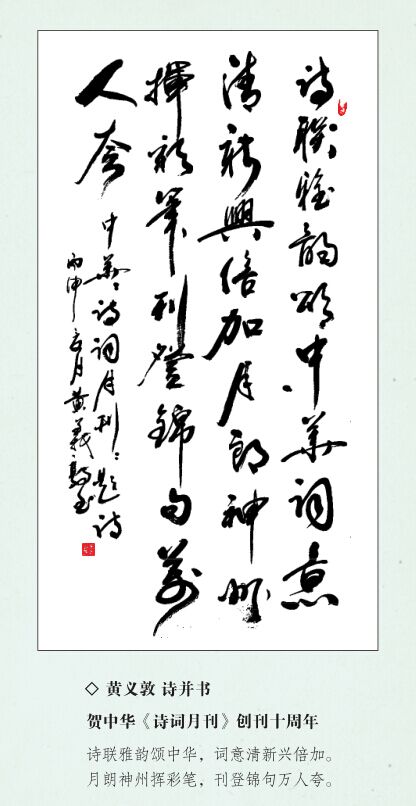 诗联雅韵颂中華词意
清新興倍加月朗神州
揮彩筆刊登錦句萬
人夸
中華诗词月刊题诗
丙申 月黄義敦书
◇ 黄义敦 诗并书
贺中华《诗词月刊》创刊十周年
诗联雅韵颂中华，词意清新兴倍加。
月朗神州挥彩笔，刊登锦句万人夸。